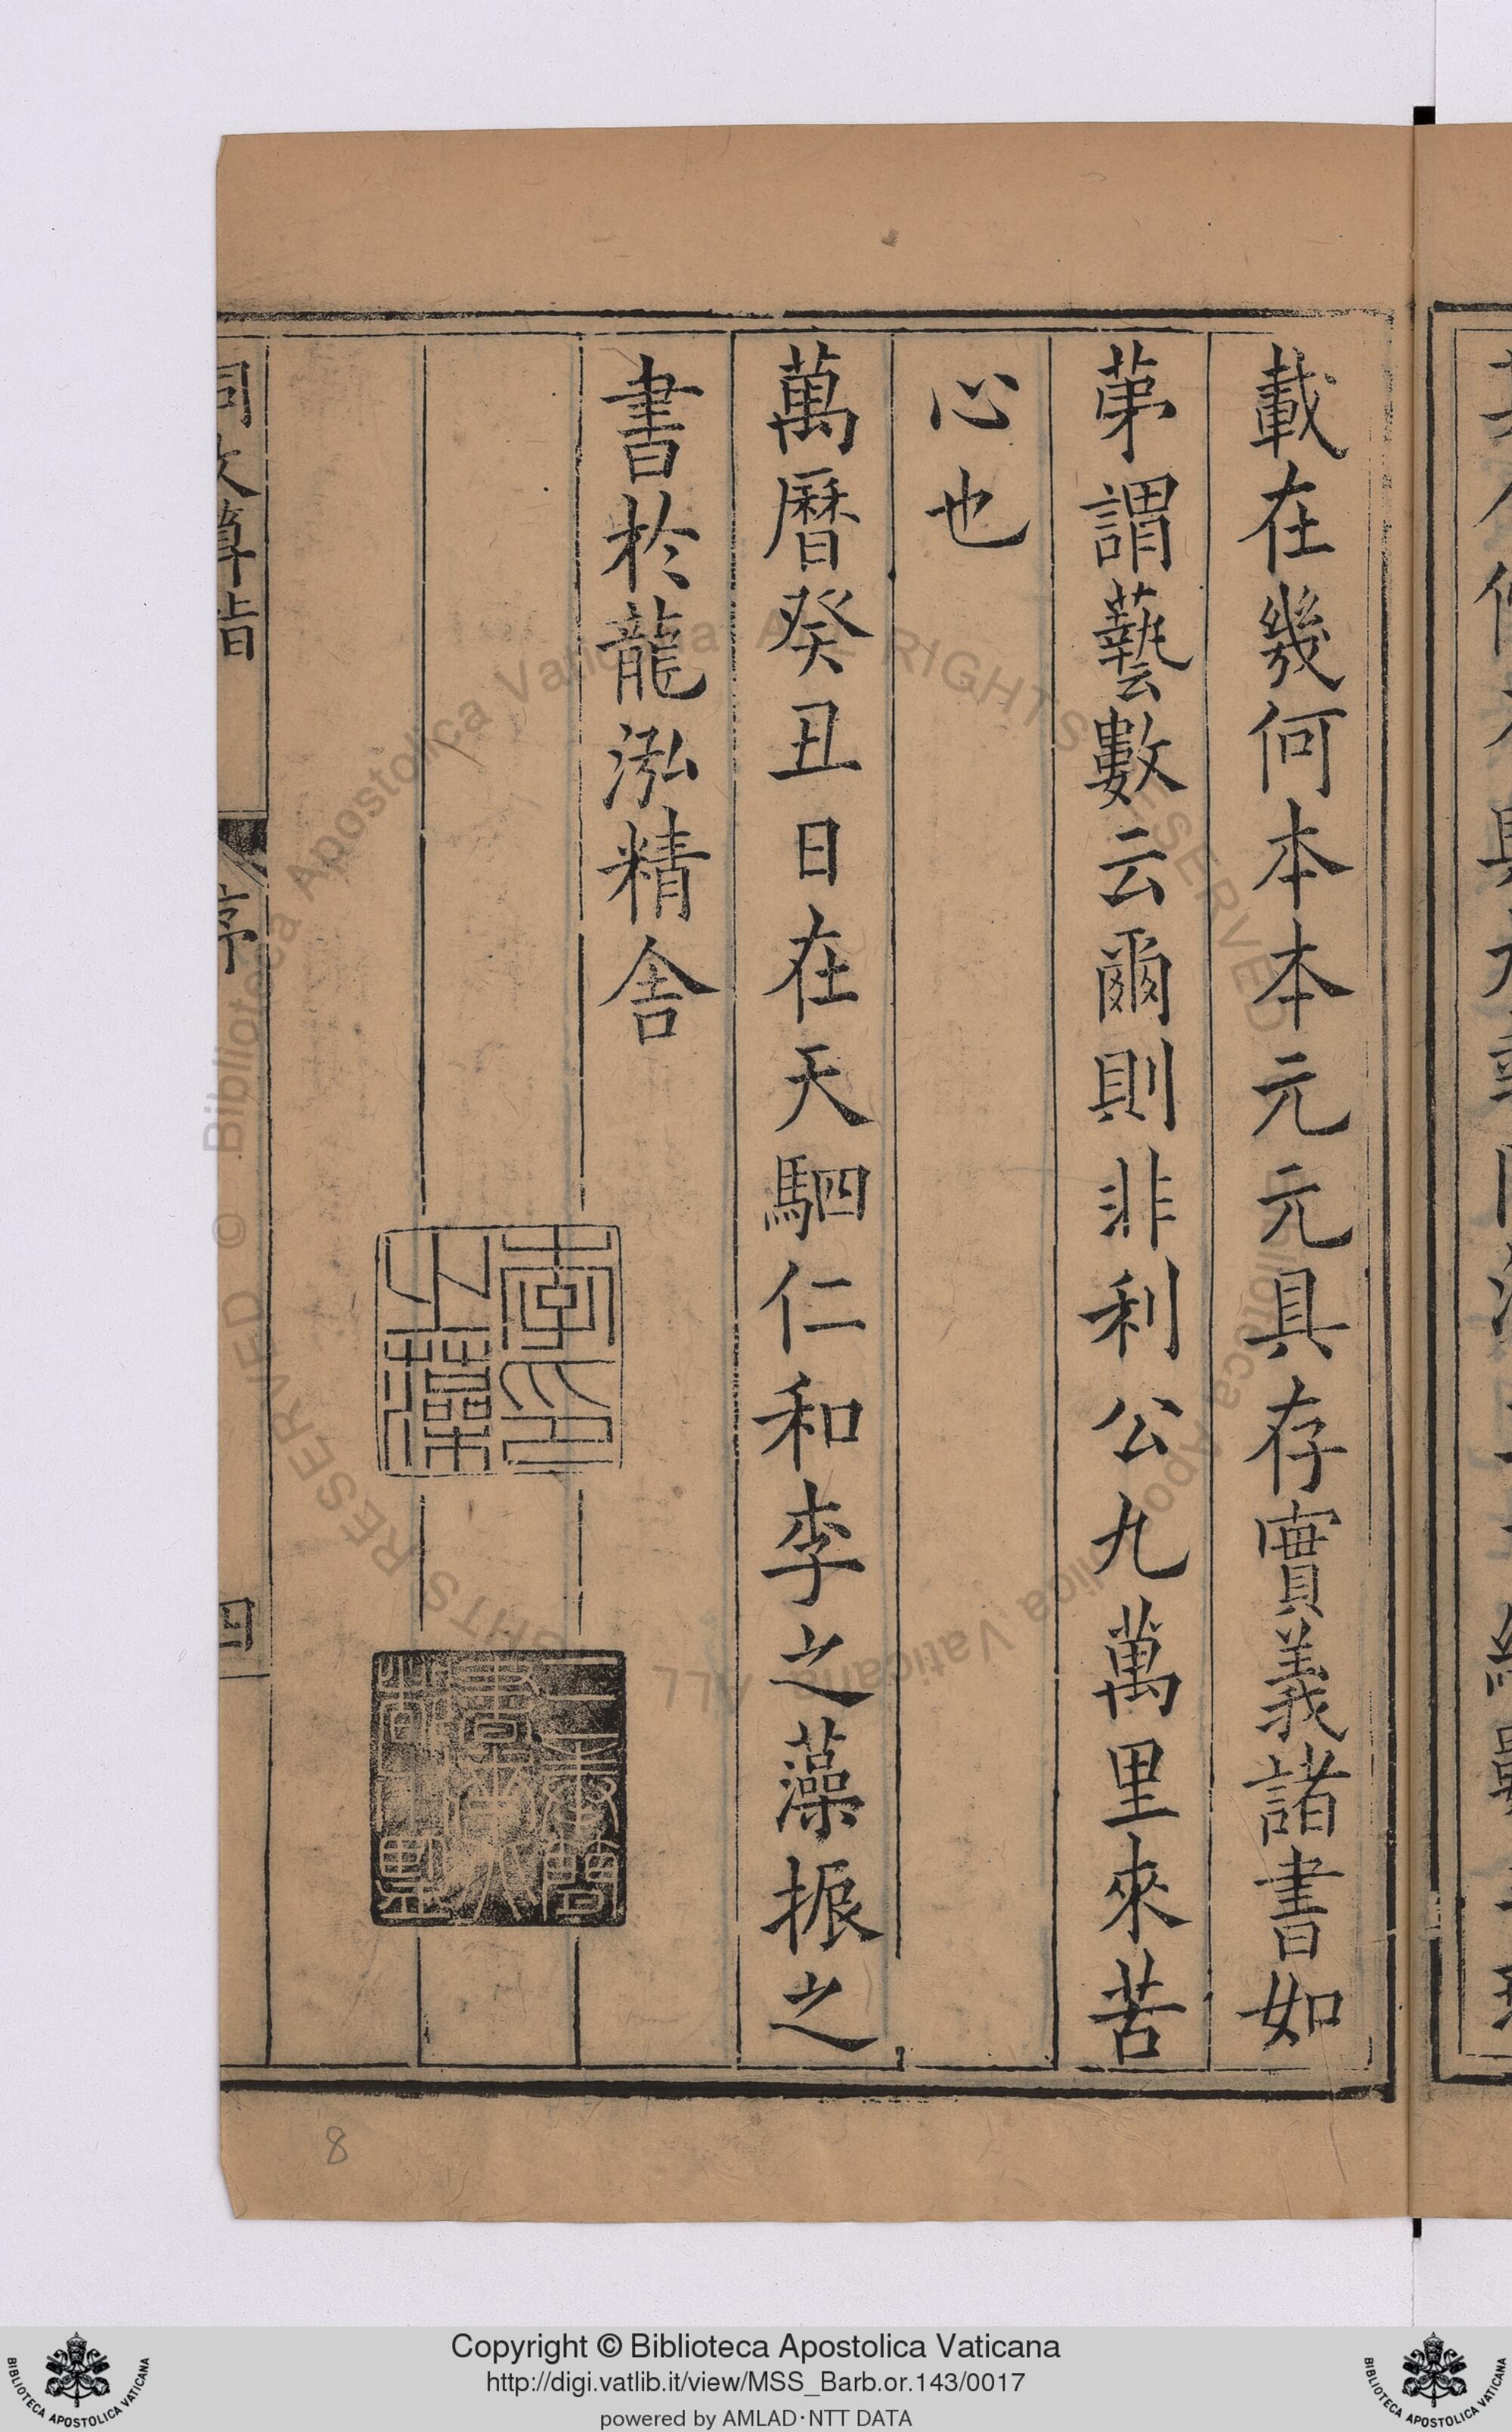 載在幾何本本元元具存實義諸書如
苐謂藝數云爾則非利公九萬里來苦
心也
萬曆癸丑日在天駟仁和李之藻振之
書於龍泓精舍
李之藻印
同文算指
序
四
8
© Biblioteca Apostolica Vaticana ALL RIGHTS RESERVED
© Biblioteca Apostolica Vaticana ALL RIGHTS RESERVED
Copyright © Biblioteca Apostolica Vaticana
http://digi.vatlib.it/view/MSS_Barb.or.143/0017
powered by AMLAD·NTT DATA
BIBLIOTECA APOSTOLICA VATICANA
BIBLIOTECA APOSTOLICA VATICANA